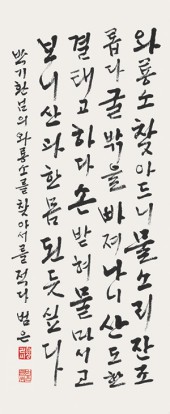 와룡소 찾아드니 물소리 잔조
롭다 굴 밖을 빠져나니 산도 한
결 태고하다 손 받혀 물 마시고
보니 산과 한 몸 된 듯 싶다
박기환님의 와룡소를 찾아서를 적다 범은